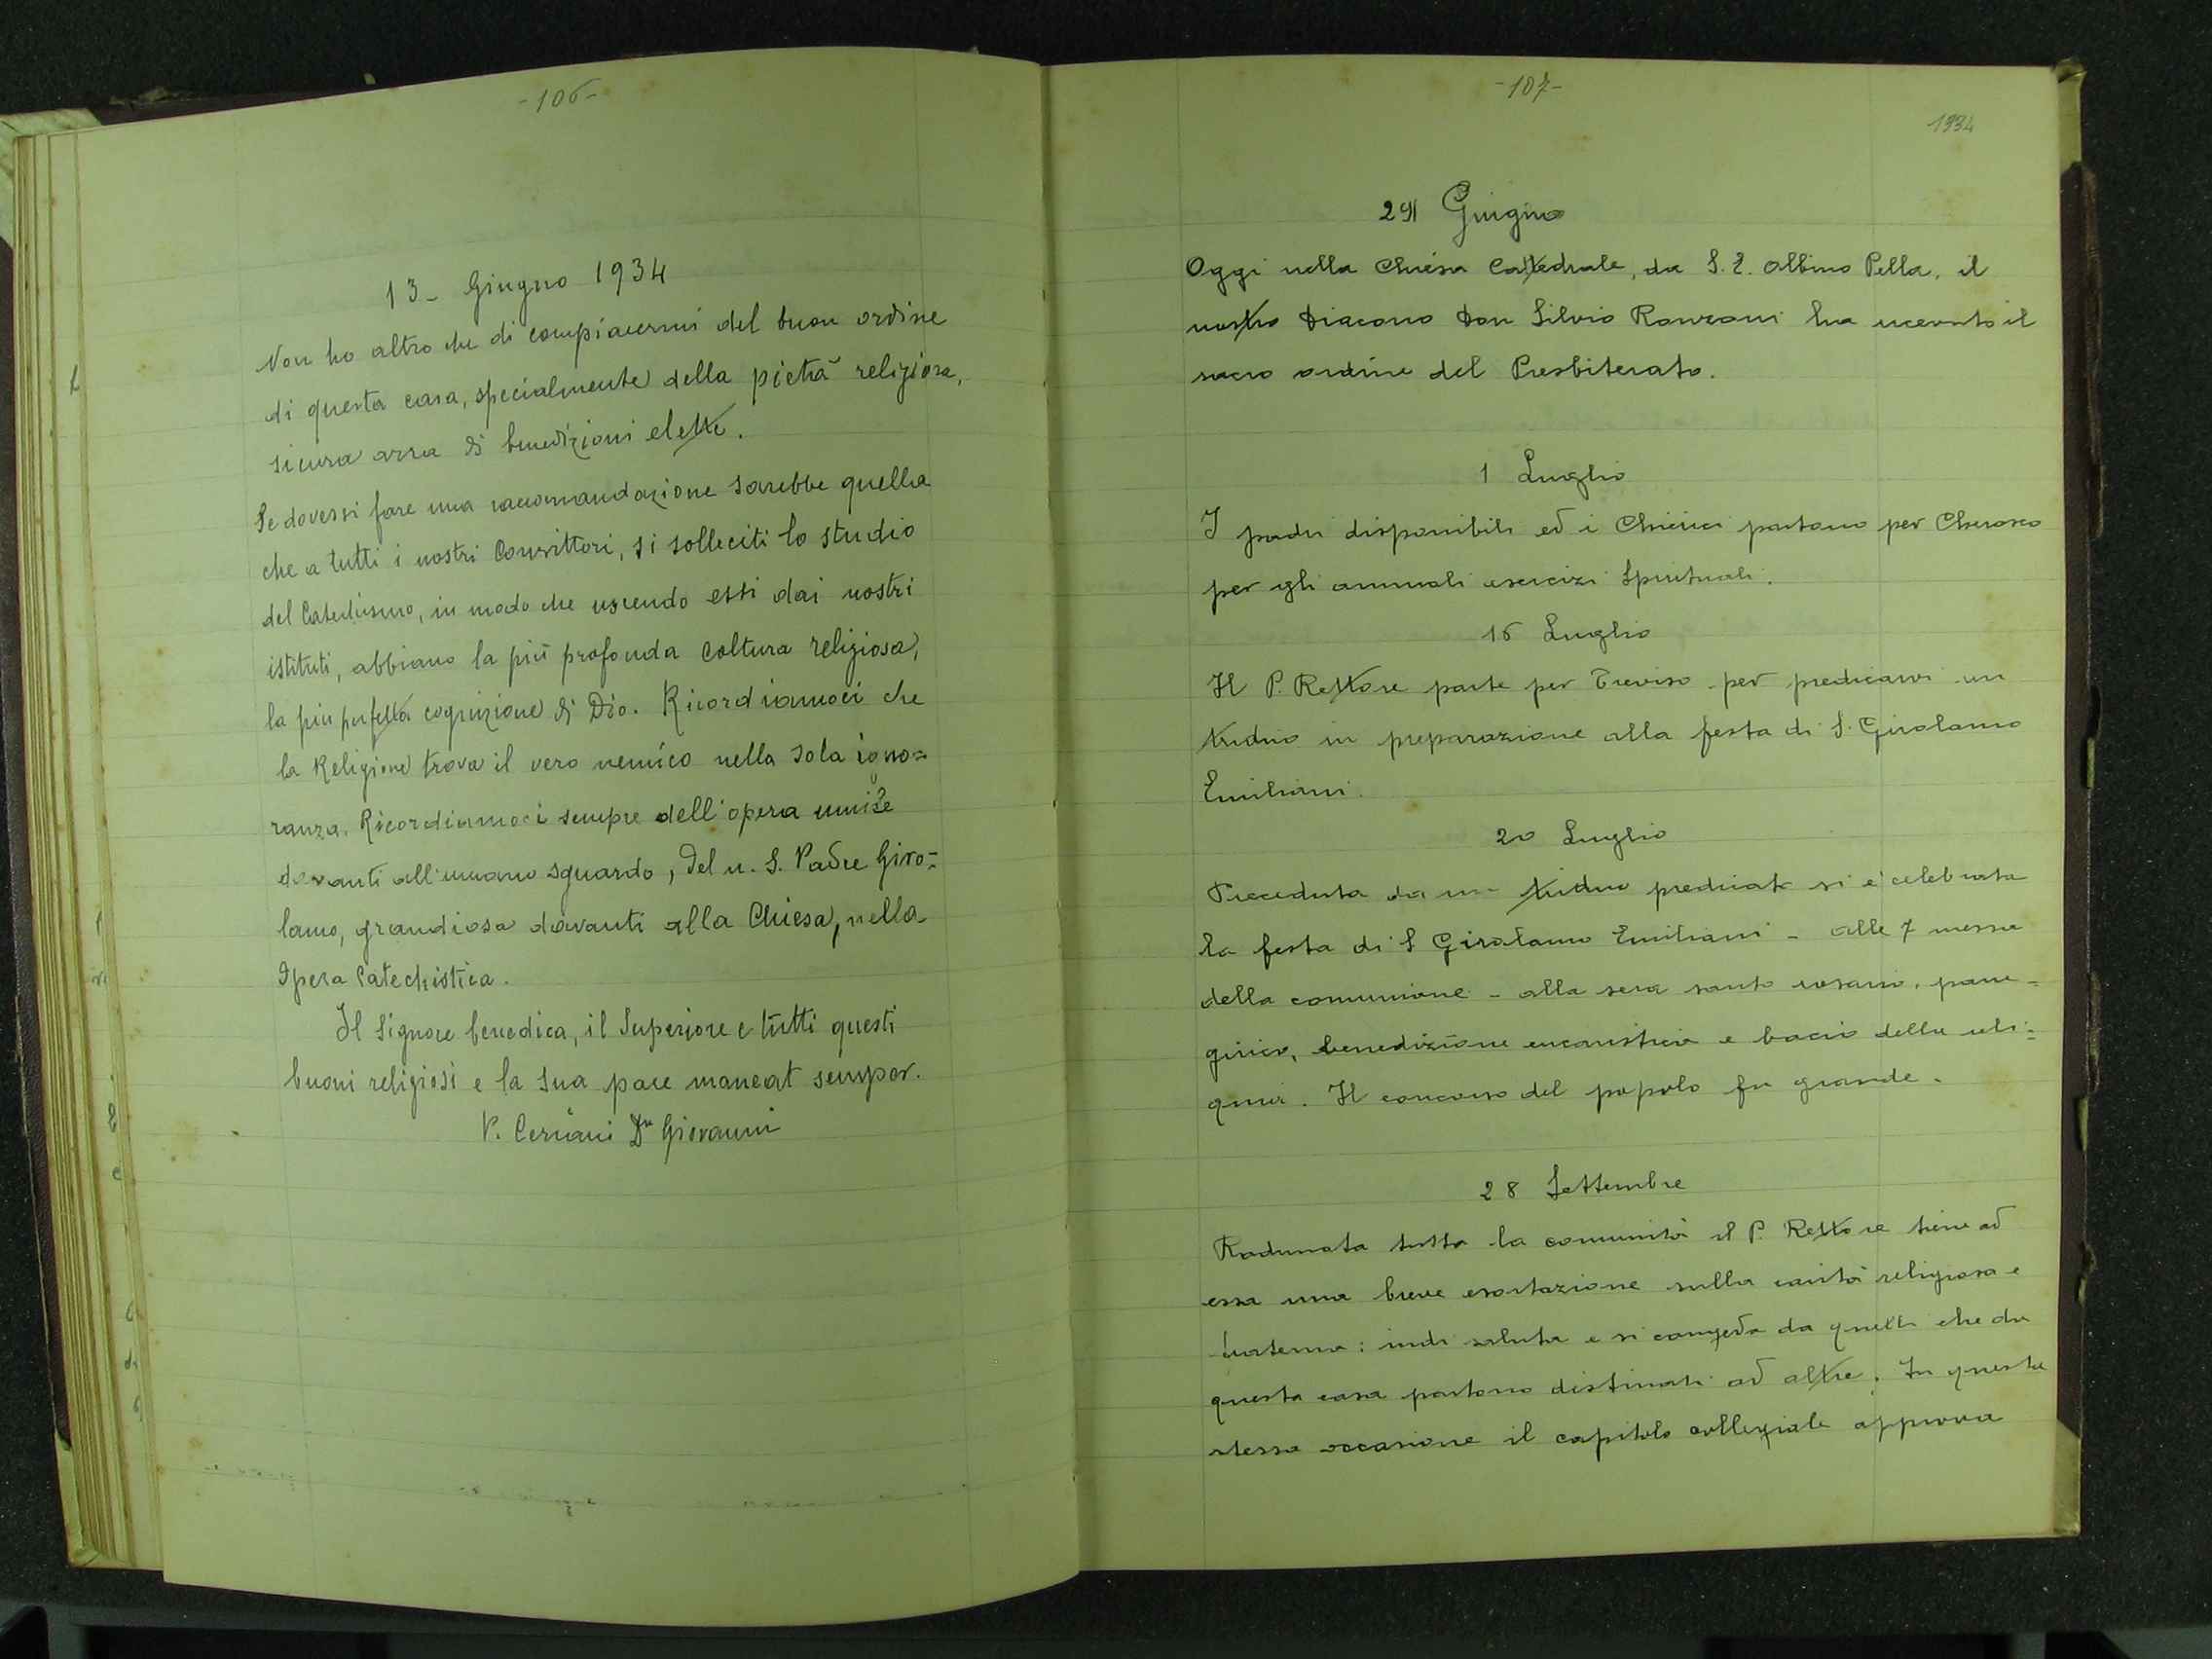 -106-
13_ Giugno 1934
Non ho altro che di compiacermi del buon ordine
di questa casa, specialmente della pietà religiosa,
sicura arra di benedizioni elette.
Se dovessi fare una raccomandazione sarebbe quella
che a tutti i nostri Convittori, si solleciti lo studio
del Catechismo, in modo che uscendo essi dai nostri
istituti, abbiano la più profonda coltura religiosa,
la più perfetta cognizione di Dio. Ricordiamoci che
la Religione trova il vero nemico nella sola igno=
ranza. Ricordiamoci sempre dell'opera umile
davanti all'umano sguardo, del n. S. Padre Giro=
lamo, grandiosa davanti alla Chiesa, nella
Opera Catechistica.
Il Signore benedica, il Superiore e tutti questi
buoni religiosi e la sua pace maneat semper.
P. Ceriani Dn Giovanni
-107-
1934
29 Giugno
Oggi nella Chiesa Cattedrale, da S. E. Albino Pella, il
nostro Diacono Don Silvio Ranzani ha ricevuto il
sacro ordine del Presbiterato.
1 Luglio
I padri disponibili ed i Chierici partono per Cherasco
per gli annuali esercizi Spirituali.
16 Luglio
Il P. Rettore parte per Treviso per predicarvi un
triduo in preparazione alla festa di S. Girolamo
Emiliani.
20 Luglio
Preceduta da un triduo predicato si è celebrata
la festa di S Girolamo Emiliani - alle 7 messa
della comunione - alla sera santo rosario, pane=
girico, benedizione eucaristica e bacio della reli=
quia. Il concorso del popolo fu grande.
28 Settembre
Radunata tutta la comunità il P. Rettore tiene ad
essa una breve esortazione sulla carità religiosa e
fraterna: indi saluta e si congeda da quelli che da
questa casa partono distinati ad altre. In questa
stessa occasione il capitolo collegiale approva